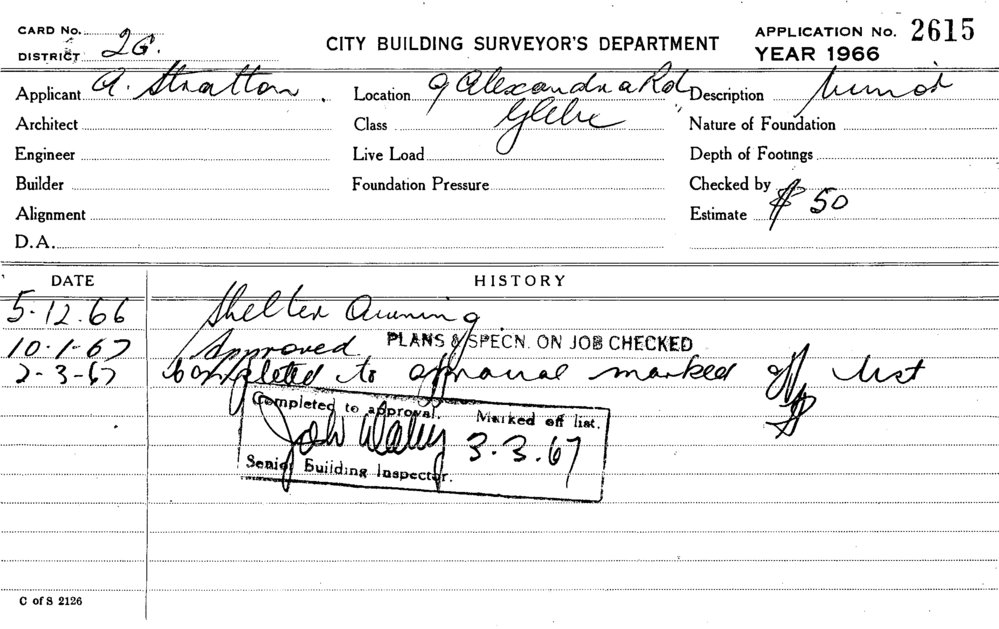 CARD No.
DISTRICT 2G.
CITY BUILDING SURVEYOR'S DEPARTMENT
APPLICATION No. 2615
YEAR 1966
Applicant A. Stratton.
Location 9 Alexandra Rd
Glebe
Description Minor
Architect
Class
Nature of Foundation
Engineer
Live Load
Depth of Footings
Builder
Foundation Pressure
Checked by
Alignment
Estimate $50
D.A.
DATE
HISTORY
5.12.66 Shelter Awning
10.1.67 Approved PLANS & SPECN. ON JOB CHECKED
2-3-67 Completed to approval marked off list
Completed to approval. Marked off list.
3.3.67
Senior Building Inspector.
C of S 2126